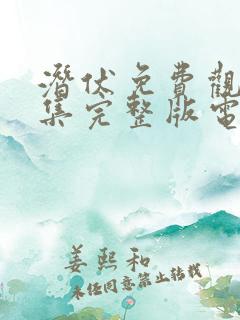 潛伏免費觀
集完整版電
姜熙和
未经同意禁止转载